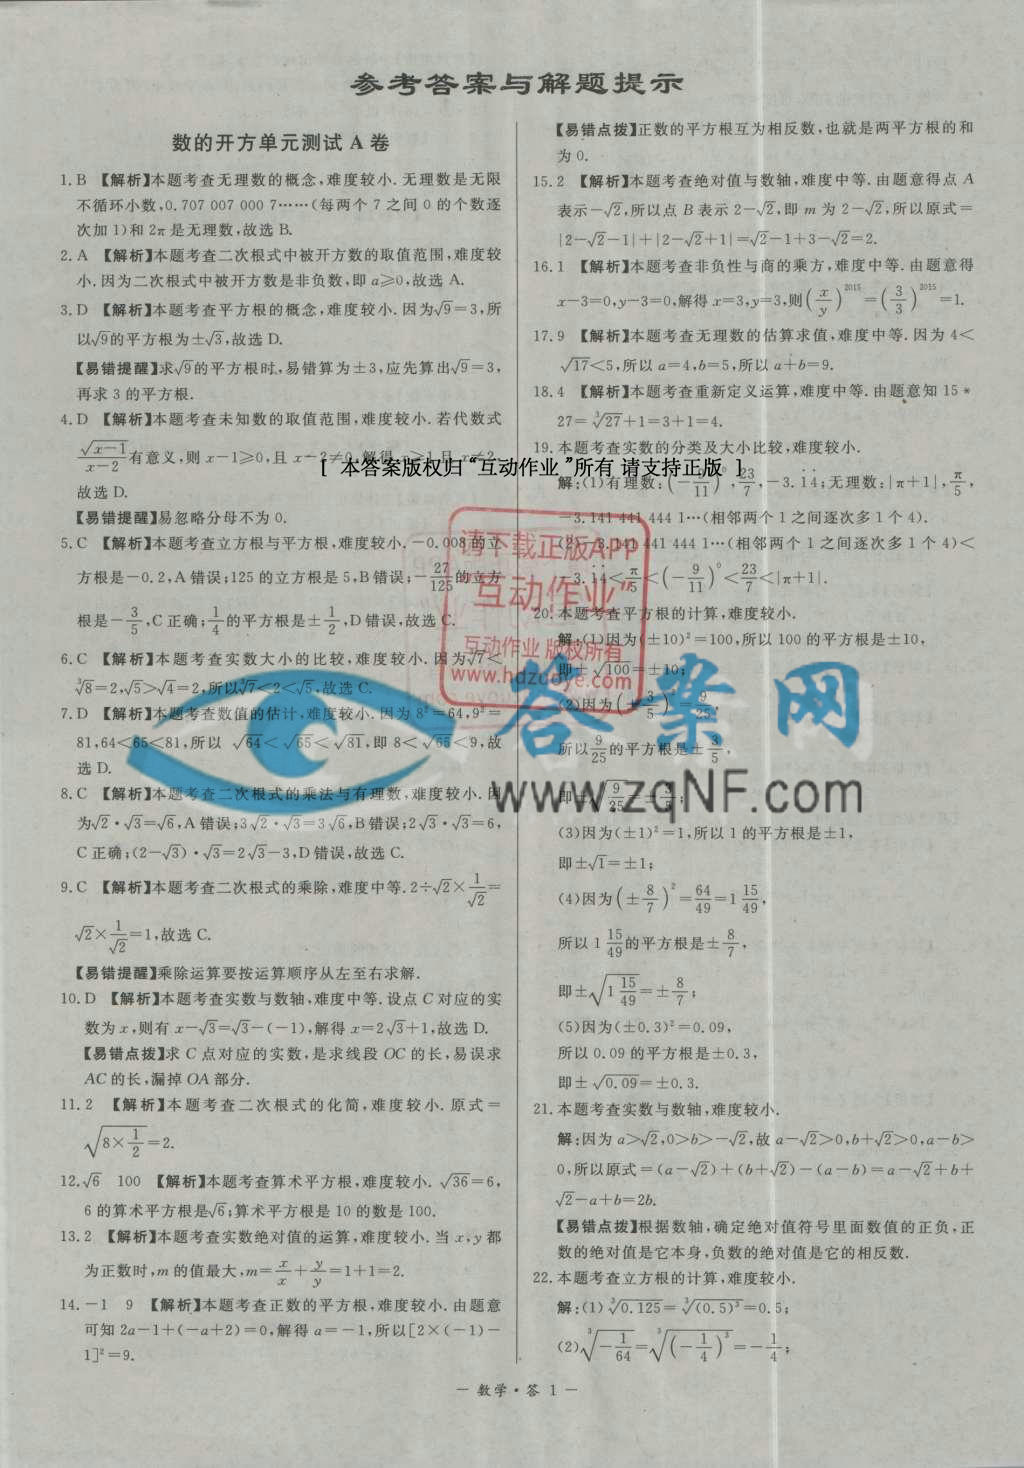 参考答案与解题提示
数的开方单元测试 A 卷
1. B 【解析】本题考查无理数的概念,难度较小.无理数是无限
不循环小数,0.707 007 000 7……(每两个 7 之间 0 的个数逐
次加 1)和 2π 是无理数,故选 B.
2. A 【解析】本题考查二次根式中被开方数的取值范围,难度较
小.因为二次根式中被开方数是非负数,即 a≥0,故选 A.
3. D 【解析】本题考查平方根的概念,难度较小.因为√9=3,所
以√9的平方根为±√3,故选 D.
【易错提醒】求√9的平方根时,易错算为±3,应先算出√9=3,
再求 3 的平方根.
4. D 【解析】本题考查未知数的取值范围,难度较小.若代数式
√(x-1)/(x-2)有意义,则 x-1≥0,且 x-2≠0,解得 x≥1且 x≠2,
故选 D.
【易错提醒】易忽略分母不为 0.
5. C 【解析】本题考查立方根与平方根,难度较小.-0.008的立
方根是-0.2,A 错误;125 的立方根是 5,B错误;-27/125的立方
根是-3/5,C 正确;1/4的平方根是±1/2,D 错误,故选 C.
6. C 【解析】本题考查实数大小的比较,难度较小.因为∛7<
∛8=2,√5>√4=2,所以∛7<2<√5,故选 C.
7. D 【解析】本题考查数值的估计,难度较小.因为 8²=64,9²=
81,64<65<81,所以 √64<√65<√81,即 8<√65<9,故
选 D.
8. C 【解析】本题考查二次根式的乘法与有理数,难度较小.因
为√2·√3=√6,A 错误;3√2·√3=3√6,B错误;2√3·√3=6,
C 正确;(2-√3)·√3=2√3-3,D 错误,故选 C.
9. C 【解析】本题考查二次根式的乘除,难度中等.2÷√2×1/√2=
√2×1/√2=1,故选 C.
【易错提醒】乘除运算要按运算顺序从左至右求解.
10. D 【解析】本题考查实数与数轴,难度中等.设点 C 对应的实
数为 x,则有 x-√3=√3-(-1),解得 x=2√3+1,故选 D.
【易错点拨】求 C 点对应的实数,是求线段 OC 的长,易误求
AC 的长,漏掉 OA 部分.
11. 2 【解析】本题考查二次根式的化简,难度较小.原式=
√(8×1/2)=2.
12. √6 100 【解析】本题考查算术平方根,难度较小.√36=6,
6 的算术平方根是√6;算术平方根是 10 的数是 100.
13. 2 【解析】本题考查实数绝对值的运算,难度较小.当 x,y 都
为正数时,m 的值最大,m=x/x+y/y=1+1=2.
14. -1 9 【解析】本题考查正数的平方根,难度较小.由题意
可知 2a-1+(-a+2)=0,解得 a=-1,所以[2×(-1)-
1]²=9.
【易错点拨】正数的平方根互为相反数,也就是两平方根的和
为 0.
15. 2 【解析】本题考查绝对值与数轴,难度中等.由题意得点 A
表示-√2,所以点 B 表示 2-√2,即 m 为 2-√2,所以原式=
|2-√2-1|+|2-√2+1|=√2-1+3-√2=2.
16. 1 【解析】本题考查非负性与商的乘方,难度中等.由题意得
x-3=0,y-3=0,解得 x=3,y=3,则(x/y)²⁰¹⁵=(3/3)²⁰¹⁵=1.
17. 9 【解析】本题考查无理数的估算求值,难度中等.因为 4<
√17<5,所以 a=4,b=5,所以 a+b=9.
18. 4 【解析】本题考查重新定义运算,难度中等.由题意知 15 *
27=∛27+1=3+1=4.
19. 本题考查实数的分类及大小比较,难度较小.
解:(1)有理数:(-9/11)⁰,23/7,-3.1̇4̇;无理数:|π+1|,π/5,
-3.141 441 444 1…(相邻两个 1 之间逐次多 1 个 4).
(2)-3.141 441 444 1…(相邻两个 1 之间逐次多 1 个 4)<
-3.1̇4̇<π/5<(-9/11)⁰<23/7<|π+1|.
20. 本题考查平方根的计算,难度较小.
解:(1)因为(±10)²=100,所以 100 的平方根是±10,
即±√100=±10;
(2)因为(±3/5)²=9/25,
所以9/25的平方根是±3/5,
即±√(9/25)=±3/5;
(3)因为(±1)²=1,所以 1 的平方根是±1,
即±√1=±1;
(4)因为(±8/7)²=64/49=1 15/49,
所以 1 15/49的平方根是±8/7,
即±√(1 15/49)=±8/7;
(5)因为(±0.3)²=0.09,
所以 0.09 的平方根是±0.3,
即±√0.09=±0.3.
21. 本题考查实数与数轴,难度较小.
解:因为 a>√2,0>b>-√2,故 a-√2>0,b+√2>0,a-b>
0,所以原式=(a-√2)+(b+√2)-(a-b)=a-√2+b+
√2-a+b=2b.
【易错点拨】根据数轴,确定绝对值符号里面数值的正负,正
数的绝对值是它本身,负数的绝对值是它的相反数.
22. 本题考查立方根的计算,难度较小.
解:(1)∛0.125=∛(0.5)³=0.5;
(2)∛(-1/64)=∛((-1/4)³)=-1/4;
[ 本答案版权归“互动作业 ”所有 请支持正版 ]
请下载正版APP
“互动作业”
互动作业 版权所有
www.hdzuoye.com
答业网
www.zqNF.com
— 数学·答 1 —